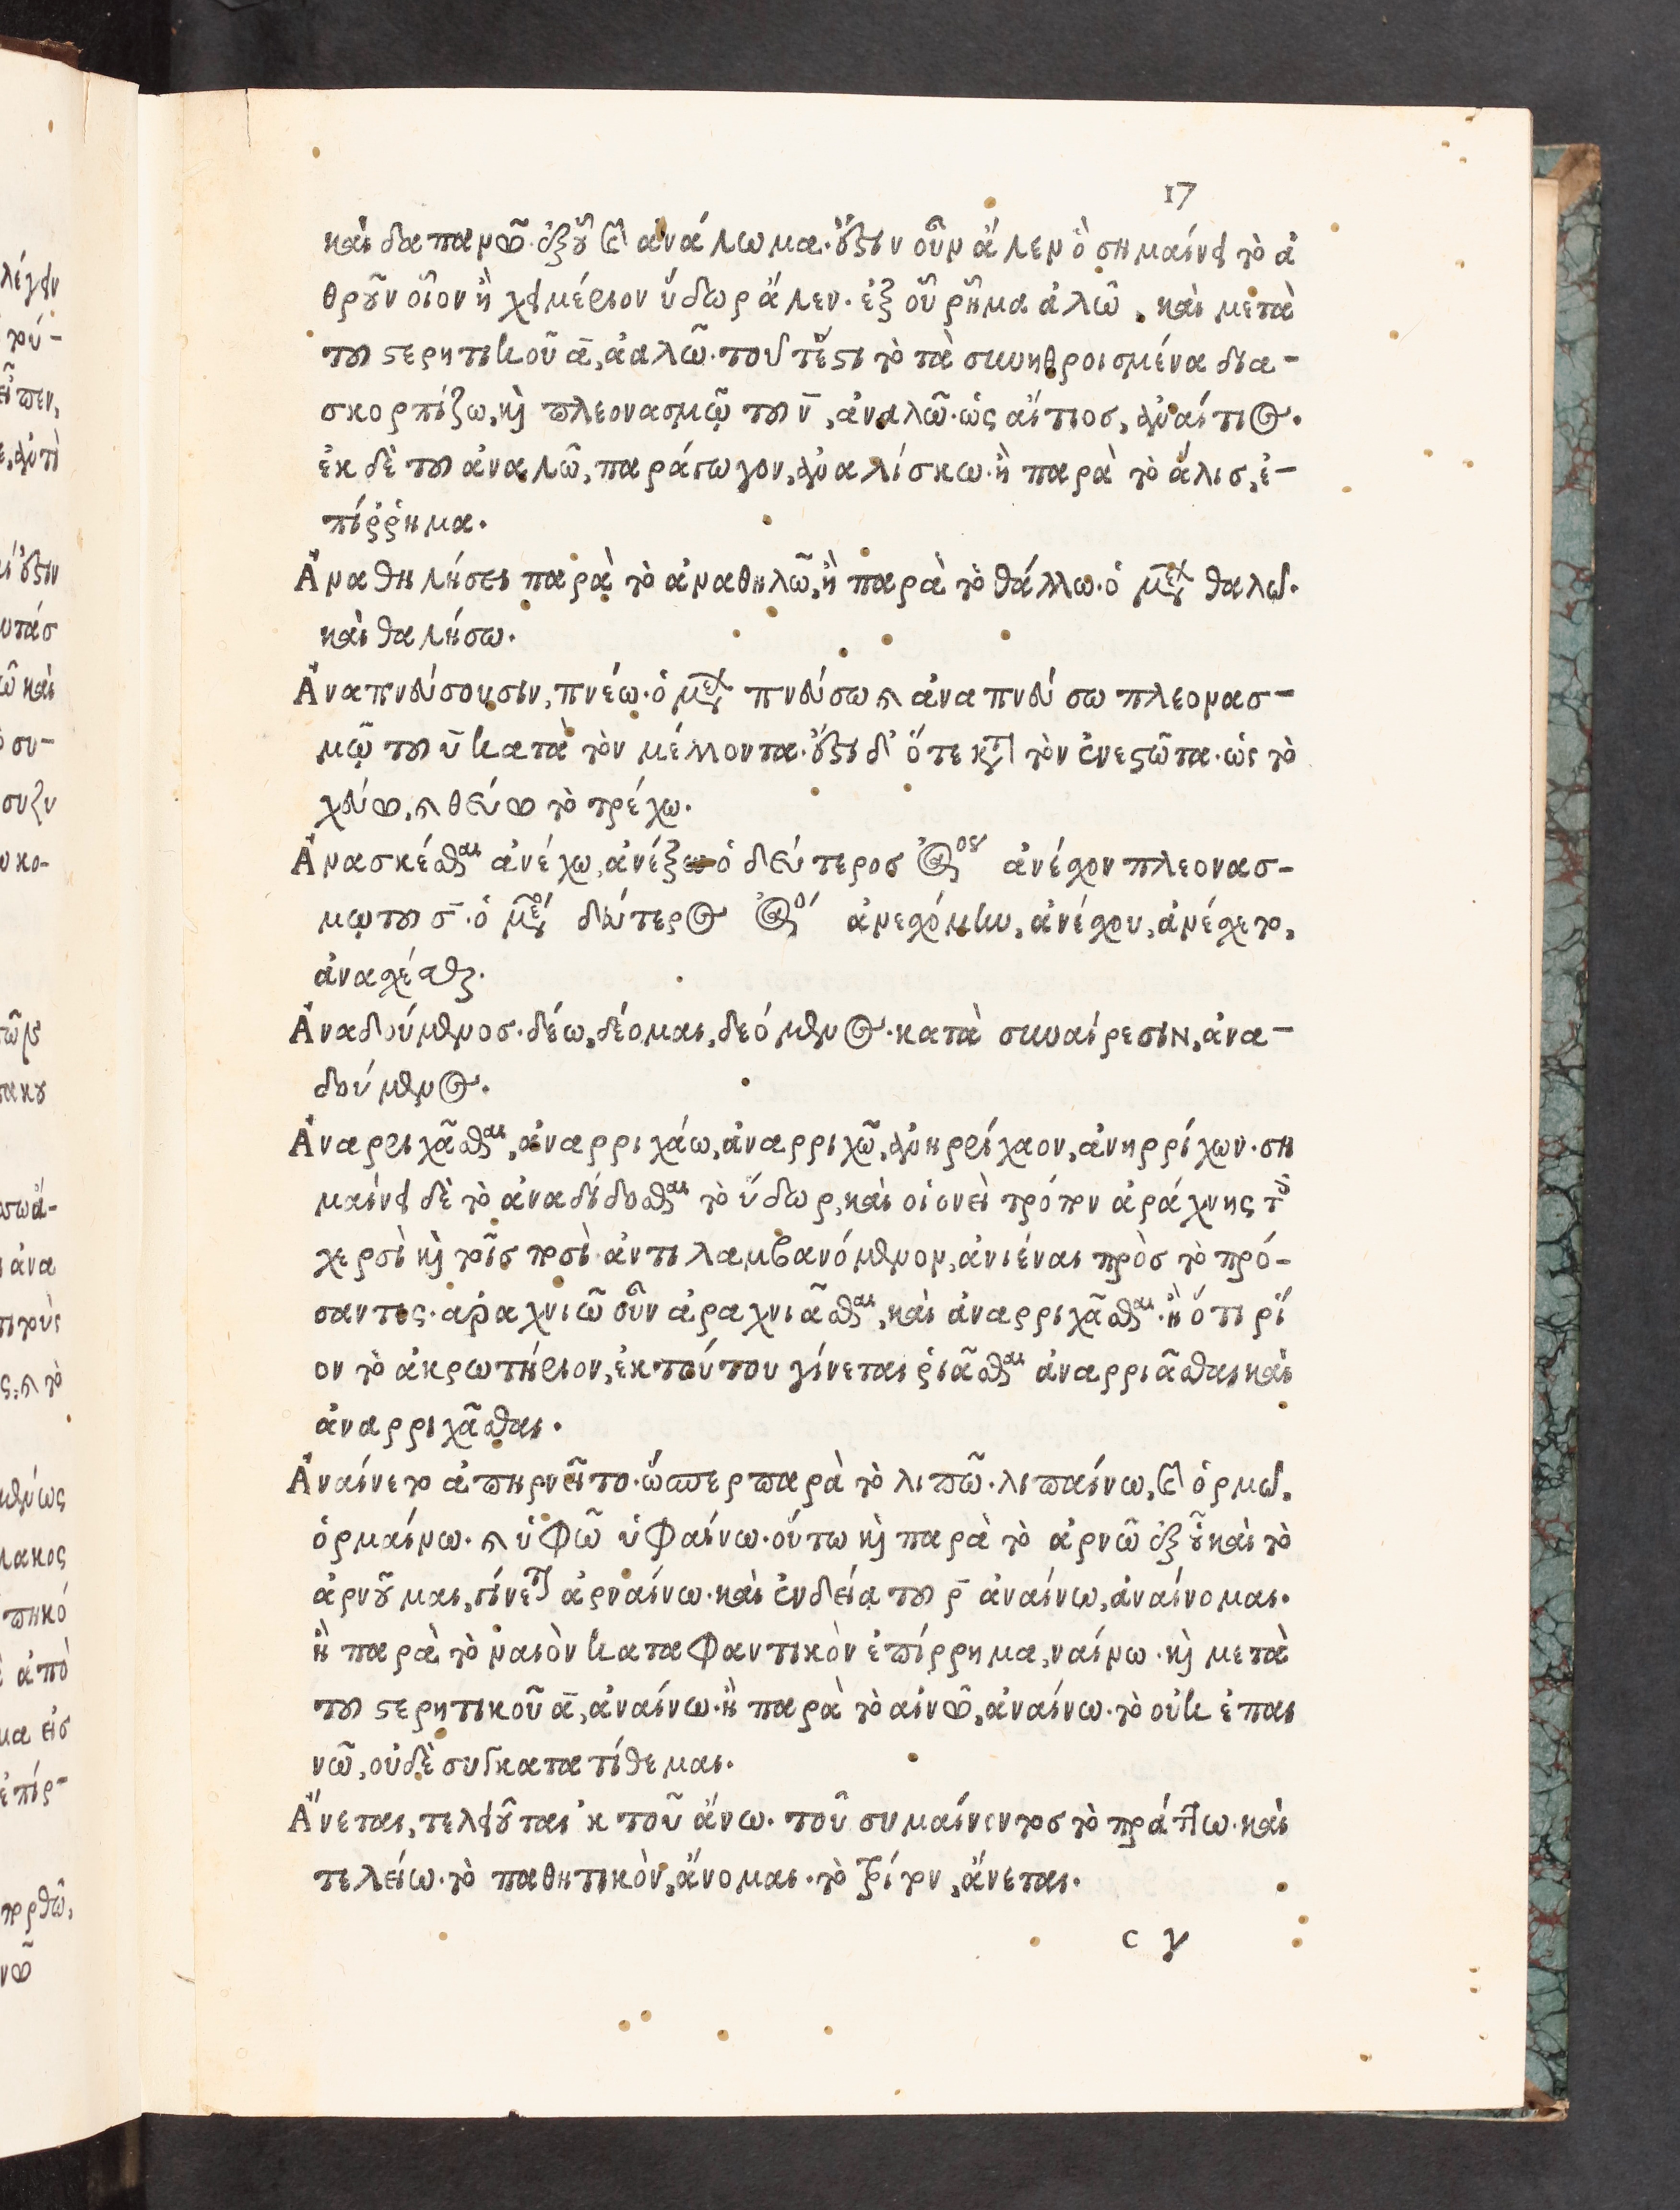 17
καὶ δαπανῶ· ἐξ οὗ καὶ ἀνάλωμα· ἔστιν οὖν ἄλεν ὃ σημαίνει τὸ ἀ
θροῦν οἷον ἢ χειμέριον ὕδωρ ἄλεν· ἐξ οὗ ῥῆμα ἀλῶ, καὶ μετὰ
τοῦ στερητικοῦ ᾱ, ἀαλῶ· τουτέστι τὸ τὰ συνηθροισμένα δια-
σκορπίζω, καὶ πλεονασμῷ τοῦ ν̄, ἀναλῶ· ὡς αἴτιος, ἀναίτιος.
ἐκ δὲ τοῦ ἀναλῶ, παράγωγον, ἀναλίσκω· ἢ παρὰ τὸ ἅλις, ἐ-
πίῤῥημα.
Ἀναθηλήσει παρὰ τὸ ἀναθηλῶ, ἢ παρὰ τὸ θάλλω· ὁ μέλλων θαλῶ.
καὶ θαλήσω.
Ἀναπνεύσουσιν, πνέω· ὁ μέλλων πνεύσω καὶ ἀναπνεύσω πλεονασ-
μῷ τοῦ ῡ κατὰ τὸν μέλλοντα· ἔστι δ' ὅτε κατὰ τὸν ἐνεστῶτα· ὡς τὸ
χεύω, καὶ θεύω τὸ τρέχω.
Ἀνασχέσθαι ἀνέχω, ἀνέξω ὁ δεύτερος ἀόριστος ἀνέχον πλεονασ-
μῳ τοῦ σ̄· ὁ μέσος δεύτερος ἀόριστος ἀνεχόμην, ἀνέχου, ἀνέχετο,
ἀνασχέσθαι.
Ἀναδούμενος· δέω, δέομαι, δεόμενος· κατὰ συναίρεσιν, ἀνα-
δούμενος.
Ἀναρριχᾶσθαι, ἀναρριχάω, ἀναρριχῶ, ἀνηρρίχαον, ἀνηρρίχων· ση
μαίνει δὲ τὸ ἀναδίδοσθαι τὸ ὕδωρ, καὶ οἱονεὶ τρόπον ἀράχνης ταῖς
χερσὶ καὶ τοῖς ποσὶ ἀντιλαμβανόμενον, ἀνιέναι πρὸς τὸ πρό-
σαντες· αραχνιῶ οὖν ἀραχνιᾶσθαι, καὶ ἀναρριχᾶσθαι· ἢ ὅτι ρί
ον τὸ ἀκρωτήριον, ἐκ τούτου γίνεται ῥιᾶσθαι ἀναρριᾶσθαι καὶ
ἀναρριχᾶσθαι.
Ἀναίνετο ἀπηρνεῖτο· ὥσπερ παρὰ τὸ λιπῶ· λιπαίνω, καὶ ὁρμῶ,
ὁρμαίνω· καὶ ὑφῶ ὑφαίνω· οὕτω καὶ παρὰ τὸ ἀρνῶ ἐξ οὗ καὶ τὸ
ἀρνοῦμαι, γίνεται ἀρναίνω· καὶ ἐνδείᾳ τοῦ ρ̄ ἀναίνω, ἀναίνομαι.
ἢ παρὰ τὸ ναιὸν καταφαντικὸν ἐπίρρημα, ναίνω· καὶ μετὰ
τοῦ στερητικοῦ ᾱ, ἀναίνω· ἢ παρὰ τὸ αἰνῶ, ἀναίνω· τὸ οὐκ ἐπαι
νῶ, οὐδὲ συγκατατίθεμαι.
Ἄνεται, τελειοῦται ἐκ τοῦ ἄνω· τοῦ συμαίνοντος τὸ πράττω· καὶ
τελείω· τὸ παθητικὸν, ἄνομαι· τὸ τρίτον, ἄνεται.
c γ